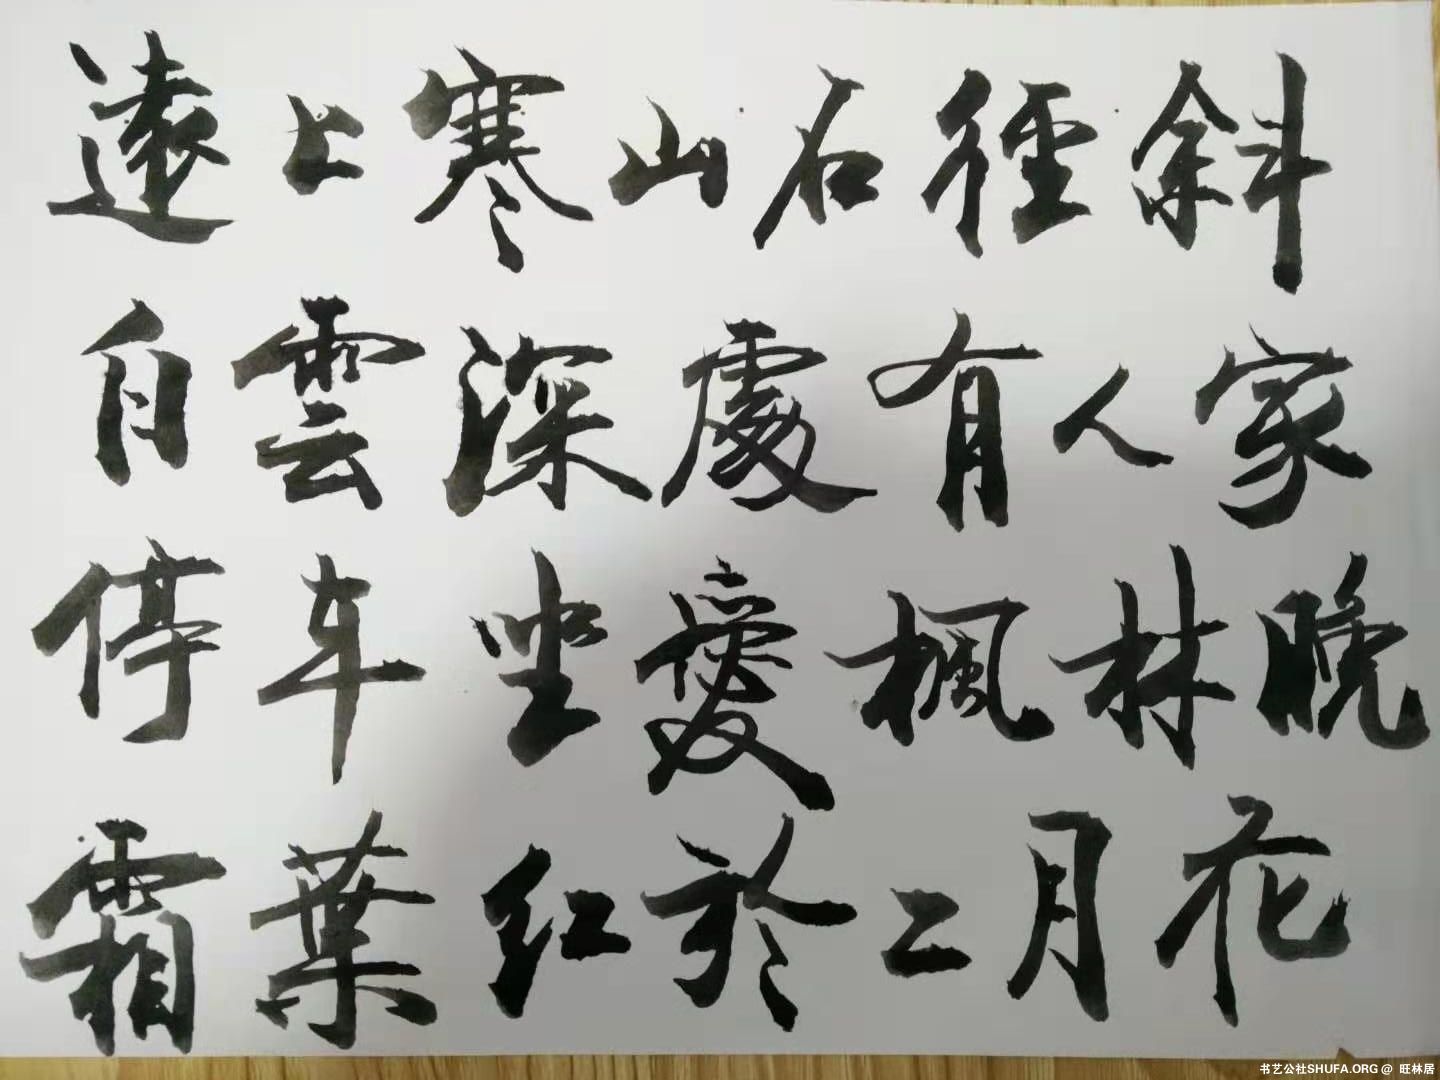 遠上寒山石徑斜
白雲深處有人家
停车坐愛楓林晚
霜葉红於二月花
书艺公社SHUFA.ORG @ 旺林居